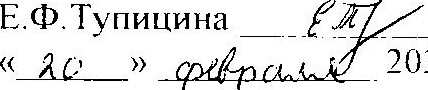 Е.Ф.Тупицина ЕТ
«20» февраля 202